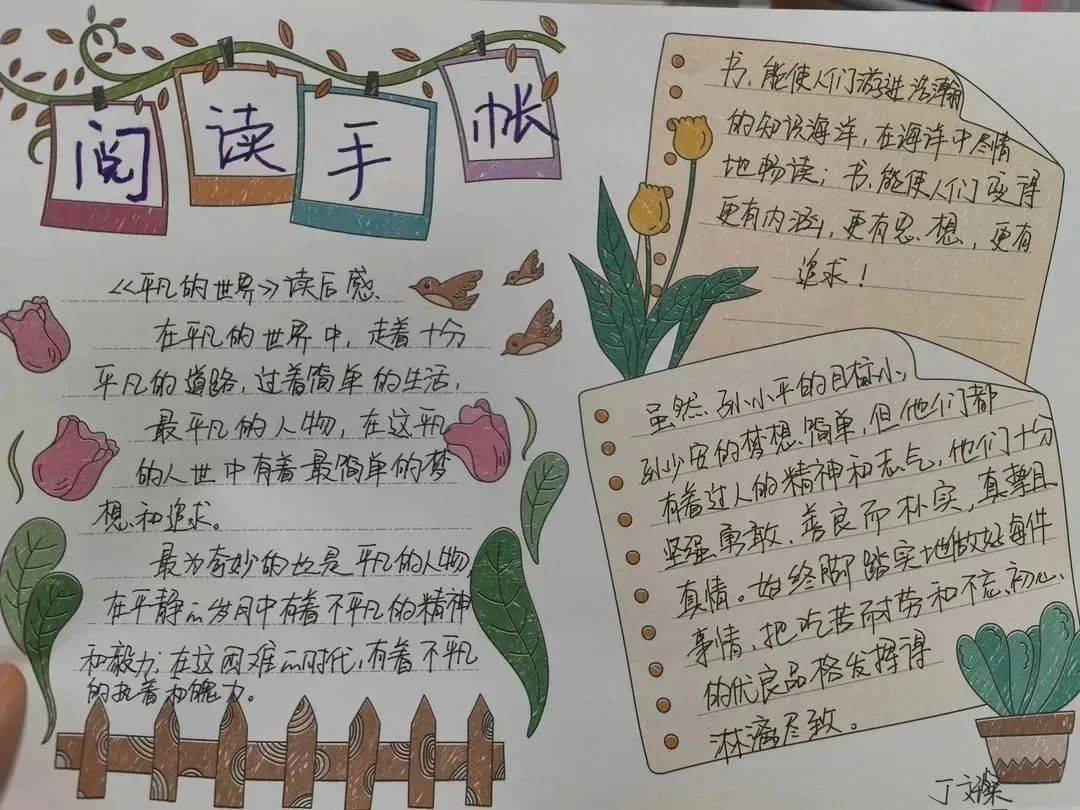 阅读手帐
《平凡的世界》读后感
在平凡的世界中，走着十分
平凡的道路，过着简单的生活，
最平凡的人物，在这平凡
的人世中有着最简单的梦
想和追求。
最为奇妙的也是平凡的人物，
在平静的岁月中有着不平凡的精神
和毅力；在这困难的时代，有着不平凡
的执着和魄力。
书，能使人们游进浩瀚
的知识海洋，在海洋中尽情
地畅读；书，能使人们变得
更有内涵，更有思想，更有
追求！
虽然孙小平的目标小，
孙少安的梦想简单，但他们都
有着过人的精神和志气，他们十分
坚强勇敢、善良而朴实，真挚且
真情。始终脚踏实地做好每件
事情，把吃苦耐劳和不忘初心、
的优良品格发挥得
淋漓尽致。
丁文